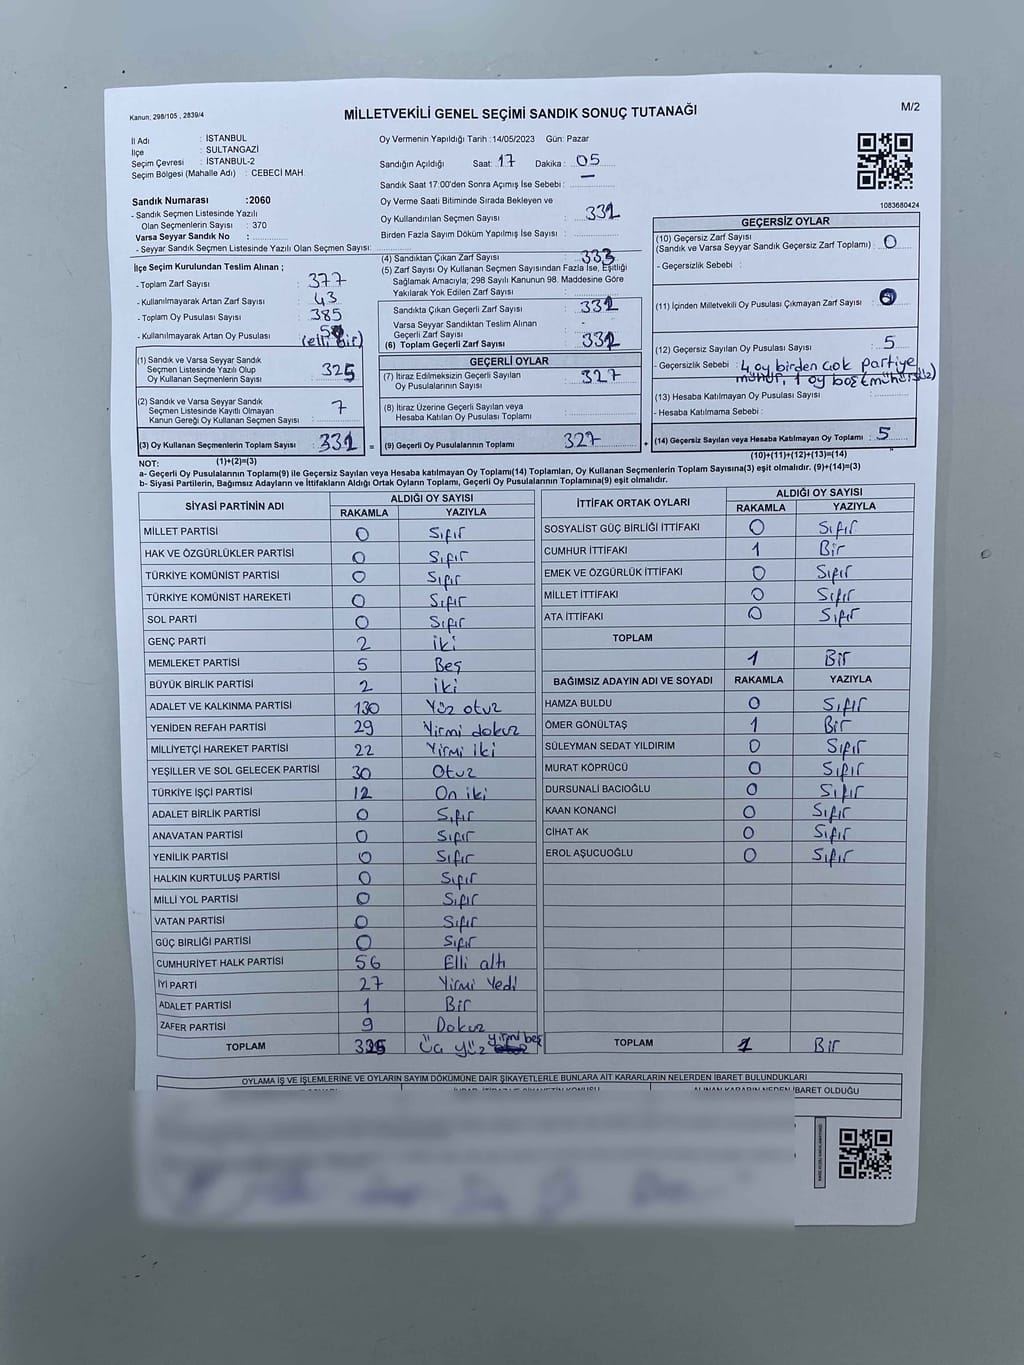 Kanun, 298/105 , 2839/4
MİLLETVEKİLİ GENEL SEÇİMİ SANDIK SONUÇ TUTANAĞI
M/2
İl Adı : İSTANBUL
İlçe : SULTANGAZİ
Seçim Çevresi : İSTANBUL-2
Seçim Bölgesi (Mahalle Adı) : CEBECİ MAH.
Oy Vermenin Yapıldığı Tarih :14/05/2023 Gün: Pazar
Sandığın Açıldığı Saat: 17 Dakika : 05
Sandık Saat 17:00'den Sonra Açımış İse Sebebi :
Oy Verme Saati Bitiminde Sırada Bekleyen ve
Oy Kullandırılan Seçmen Sayısı :
Birden Fazla Sayım Döküm Yapılmış İse Sayısı :
1083680424
Sandık Numarası :2060
- Sandık Seçmen Listesinde Yazılı
Olan Seçmenlerin Sayısı : 370
Varsa Seyyar Sandık No :
- Seyyar Sandık Seçmen Listesinde Yazılı Olan Seçmen Sayısı:
İlçe Seçim Kurulundan Teslim Alınan ;
- Toplam Zarf Sayısı : 377
- Kullanılmayarak Artan Zarf Sayısı : 43
- Toplam Oy Pusulası Sayısı : 385
- Kullanılmayarak Artan Oy Pusulası : (elli bir)
(1) Sandık ve Varsa Seyyar Sandık
Seçmen Listesinde Yazılı Olup
Oy Kullanan Seçmenlerin Sayısı : 325
(2) Sandık ve Varsa Seyyar Sandık
Seçmen Listesinde Kayıtlı Olmayan
Kanun Gereği Oy Kullanan Seçmen Sayısı : 7
(3) Oy Kullanan Seçmenlerin Toplam Sayısı : =
(4) Sandıktan Çıkan Zarf Sayısı : 333
(5) Zarf Sayısı Oy Kullanan Seçmen Sayısından Fazla İse, Eşitliği
Sağlamak Amacıyla; 298 Sayılı Kanunun 98. Maddesine Göre
Yakılarak Yok Edilen Zarf Sayısı :
Sandıkta Çıkan Geçerli Zarf Sayısı :
Varsa Seyyar Sandıktan Teslim Alınan
Geçerli Zarf Sayısı : -
(6) Toplam Geçerli Zarf Sayısı :
GEÇERLİ OYLAR
(7) İtiraz Edilmeksizin Geçerli Sayılan
Oy Pusulalarının Sayısı : 327
(8) İtiraz Üzerine Geçerli Sayılan veya
Hesaba Katılan Oy Pusulası Toplamı :
(9) Geçerli Oy Pusulalarının Toplamı : 327 +
GEÇERSİZ OYLAR
(10) Geçersiz Zarf Sayısı
(Sandık ve Varsa Seyyar Sandık Geçersiz Zarf Toplamı) : 0
- Geçersizlik Sebebi :
(11) İçinden Milletvekili Oy Pusulası Çıkmayan Zarf Sayısı :
(12) Geçersiz Sayılan Oy Pusulası Sayısı : 5
- Geçersizlik Sebebi : 4 oy birden çok partiye
mühür, 1 oy boş (mühürsüz)
(13) Hesaba Katılmayan Oy Pusulası Sayısı :
- Hesaba Katılmama Sebebi :
(14) Geçersiz Sayılan veya Hesaba Katılmayan Oy Toplamı : 5
NOT: (1)+(2)=(3) (10)+(11)+(12)+(13)=(14)
a- Geçerli Oy Pusulalarının Toplamı(9) ile Geçersiz Sayılan veya Hesaba katılmayan Oy Toplamı(14) Toplamları, Oy Kullanan Seçmenlerin Toplam Sayısına(3) eşit olmalıdır. (9)+(14)=(3)
b- Siyasi Partilerin, Bağımsız Adayların ve İttifakların Aldığı Ortak Oyların Toplamı, Geçerli Oy Pusulalarının Toplamına(9) eşit olmalıdır.
SİYASİ PARTİNİN ADI ALDIĞI OY SAYISI
RAKAMLA YAZIYLA
MİLLET PARTİSİ 0 Sıfır
HAK VE ÖZGÜRLÜKLER PARTİSİ 0 Sıfır
TÜRKİYE KOMÜNİST PARTİSİ 0 Sıfır
TÜRKİYE KOMÜNİST HAREKETİ 0 Sıfır
SOL PARTİ 0 Sıfır
GENÇ PARTİ 2 iki
MEMLEKET PARTİSİ 5 Beş
BÜYÜK BİRLİK PARTİSİ 2 iki
ADALET VE KALKINMA PARTİSİ 130 Yüz otuz
YENİDEN REFAH PARTİSİ 29 Yirmi dokuz
MİLLİYETÇİ HAREKET PARTİSİ 22 Yirmi iki
YEŞİLLER VE SOL GELECEK PARTİSİ 30 Otuz
TÜRKİYE İŞÇİ PARTİSİ 12 On iki
ADALET BİRLİK PARTİSİ 0 Sıfır
ANAVATAN PARTİSİ 0 Sıfır
YENİLİK PARTİSİ 0 Sıfır
HALKIN KURTULUŞ PARTİSİ 0 Sıfır
MİLLİ YOL PARTİSİ 0 Sıfır
VATAN PARTİSİ 0 Sıfır
GÜÇ BİRLİĞİ PARTİSİ 0 Sıfır
CUMHURİYET HALK PARTİSİ 56 Elli altı
İYİ PARTİ 27 Yirmi Yedi
ADALET PARTİSİ 1 Bir
ZAFER PARTİSİ 9 Dokuz
TOPLAM Üç yüz yirmi beş
İTTİFAK ORTAK OYLARI ALDIĞI OY SAYISI
RAKAMLA YAZIYLA
SOSYALİST GÜÇ BİRLİĞİ İTTİFAKI 0 Sıfır
CUMHUR İTTİFAKI 1 Bir
EMEK VE ÖZGÜRLÜK İTTİFAKI 0 Sıfır
MİLLET İTTİFAKI 0 Sıfır
ATA İTTİFAKI 0 Sıfır
TOPLAM
1 Bir
BAĞIMSIZ ADAYIN ADI VE SOYADI RAKAMLA YAZIYLA
HAMZA BULDU 0 Sıfır
ÖMER GÖNÜLTAŞ 1 Bir
SÜLEYMAN SEDAT YILDIRIM 0 Sıfır
MURAT KÖPRÜCÜ 0 Sıfır
DURSUNALİ BACIOĞLU 0 Sıfır
KAAN KONANCİ 0 Sıfır
CİHAT AK 0 Sıfır
EROL AŞUCUOĞLU 0 Sıfır
TOPLAM 1 Bir
OYLAMA İŞ VE İŞLEMLERİNE VE OYLARIN SAYIM DÖKÜMÜNE DAİR ŞİKAYETLERLE BUNLARA AİT KARARLARIN NELERDEN İBARET BULUNDUKLARI